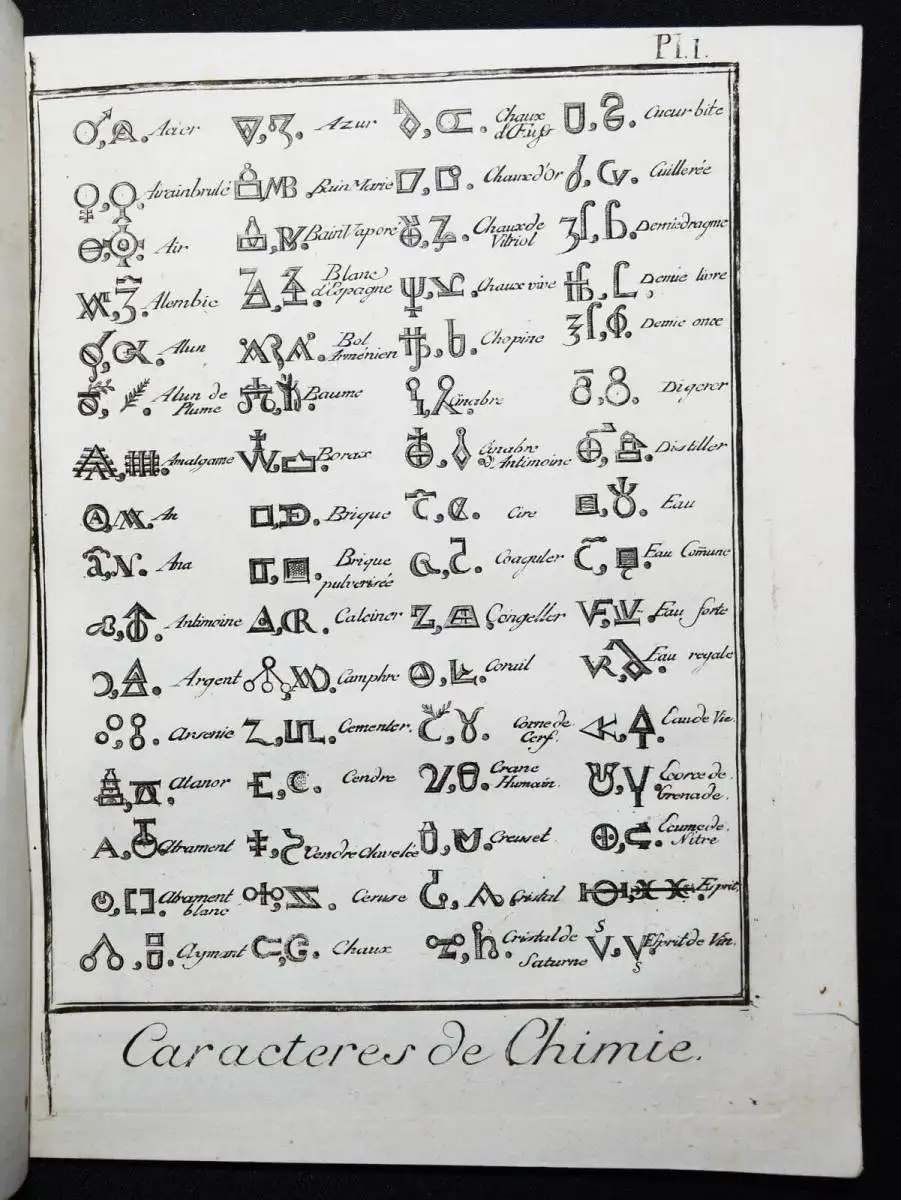 Pl.1.
Acier
Airain brulé
Air
Alembic
Alun
Alun de
Plume
Amalgame
An
Ana
Antimoine
Argent
Arsenic
Atanor
Atrament
Atrament
blanc
Aymant
Azur
Bain Marie
Bain Vapore
Blanc
d'Espagne
Bol
Arménien
Baume
Borax
Brique
Brique
pulverisée
Calciner
Camphre
Cementer.
Cendre
Cendre Clavelée
Ceruse
Chaux
Chaux
d'Œufs
Chaux d'Or
Chaux de
Vitriol
Chaux vive
Chopine
Cinabre
Cinabre
d'Antimoine
Cire
Coaguler
Congeller
Corne de
Cerf.
Crane
Humain.
Creuset
Cristal
Cristal de
Saturne
Cucurbite
Cuillerée
Demie dragme
Demie livre
Demie once
Digerer
Distiller
Eau
Eau Comune
Eau forte
Eau regale
Eau de Vie.
Ecorce de
Grenade.
Ecume de
Nitre
Esprit
Esprit de Vin.
Caracteres de Chimie.